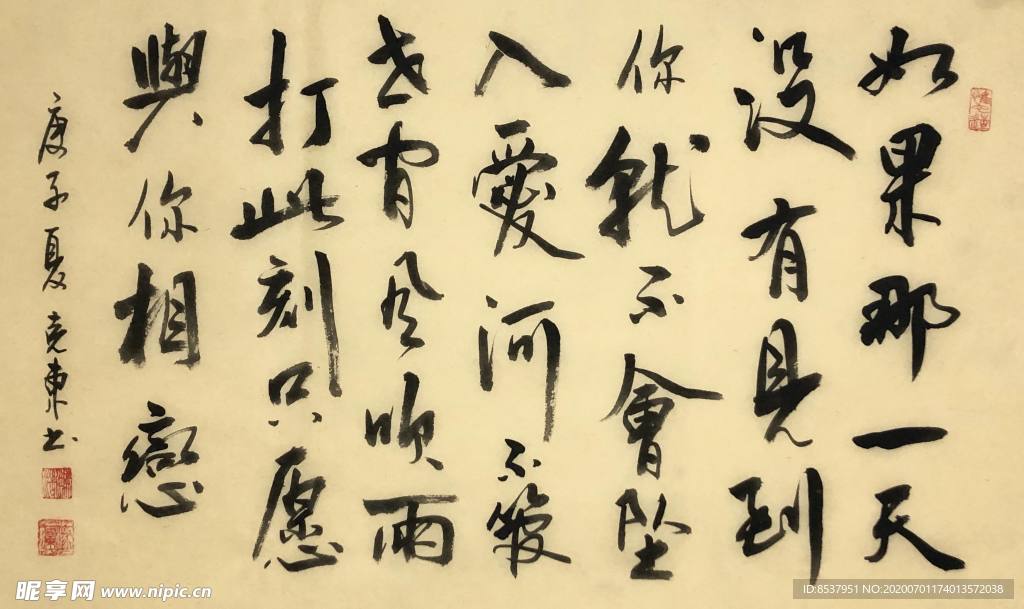 如果那一天
没有見到
你就不會坠
入愛河不管
世間风吹雨
打此刻只愿
與你相戀
庚子夏克東书
昵享网 www.nipic.cn
ID:8537951 NO:20200701174013572038